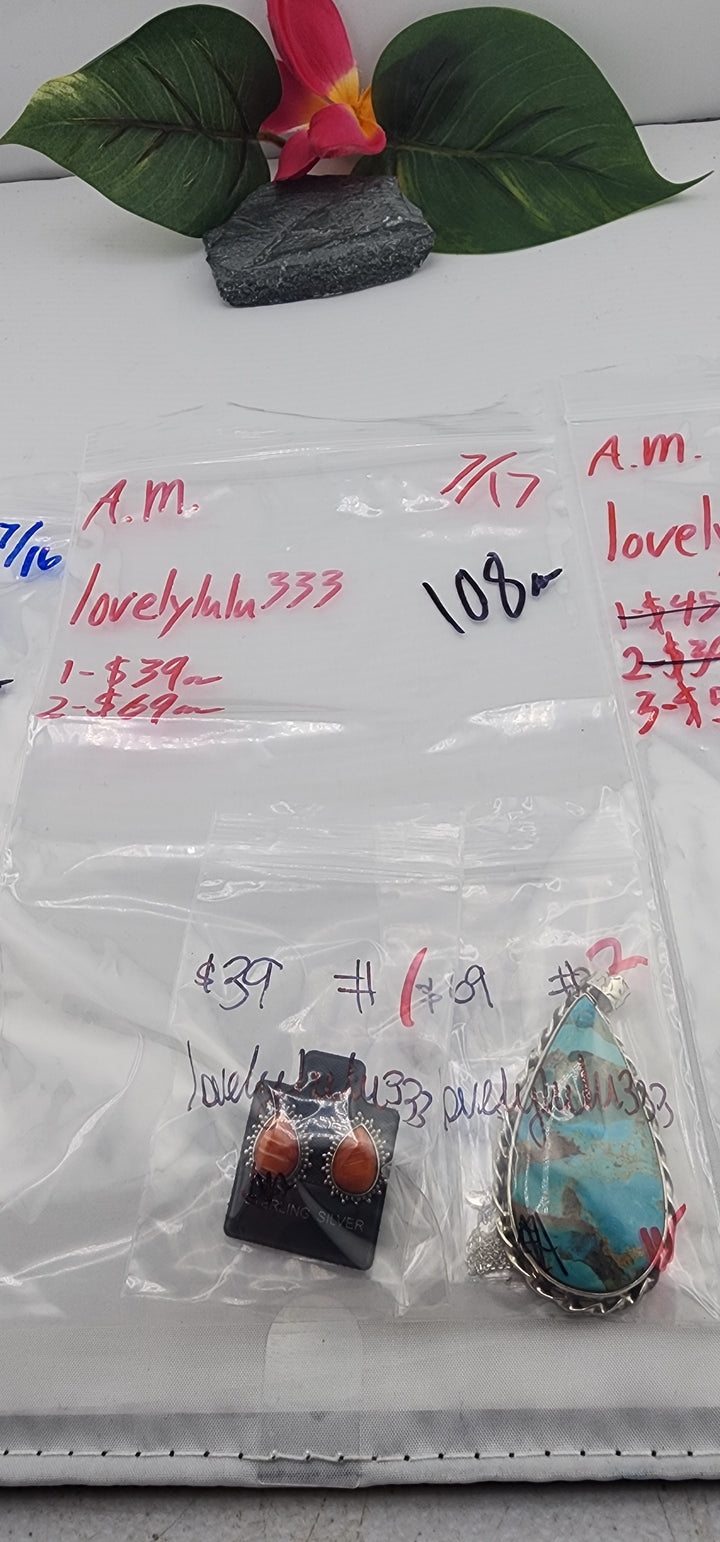 A.M. 7/17
lovelylulu333 108
1-$39
2-$69
7/16
A.M.
lovely
1-$45
2-$3
3-$5
$39 #1
lovelylulu333
$69 #2
lovelylulu333
STERLING SILVER